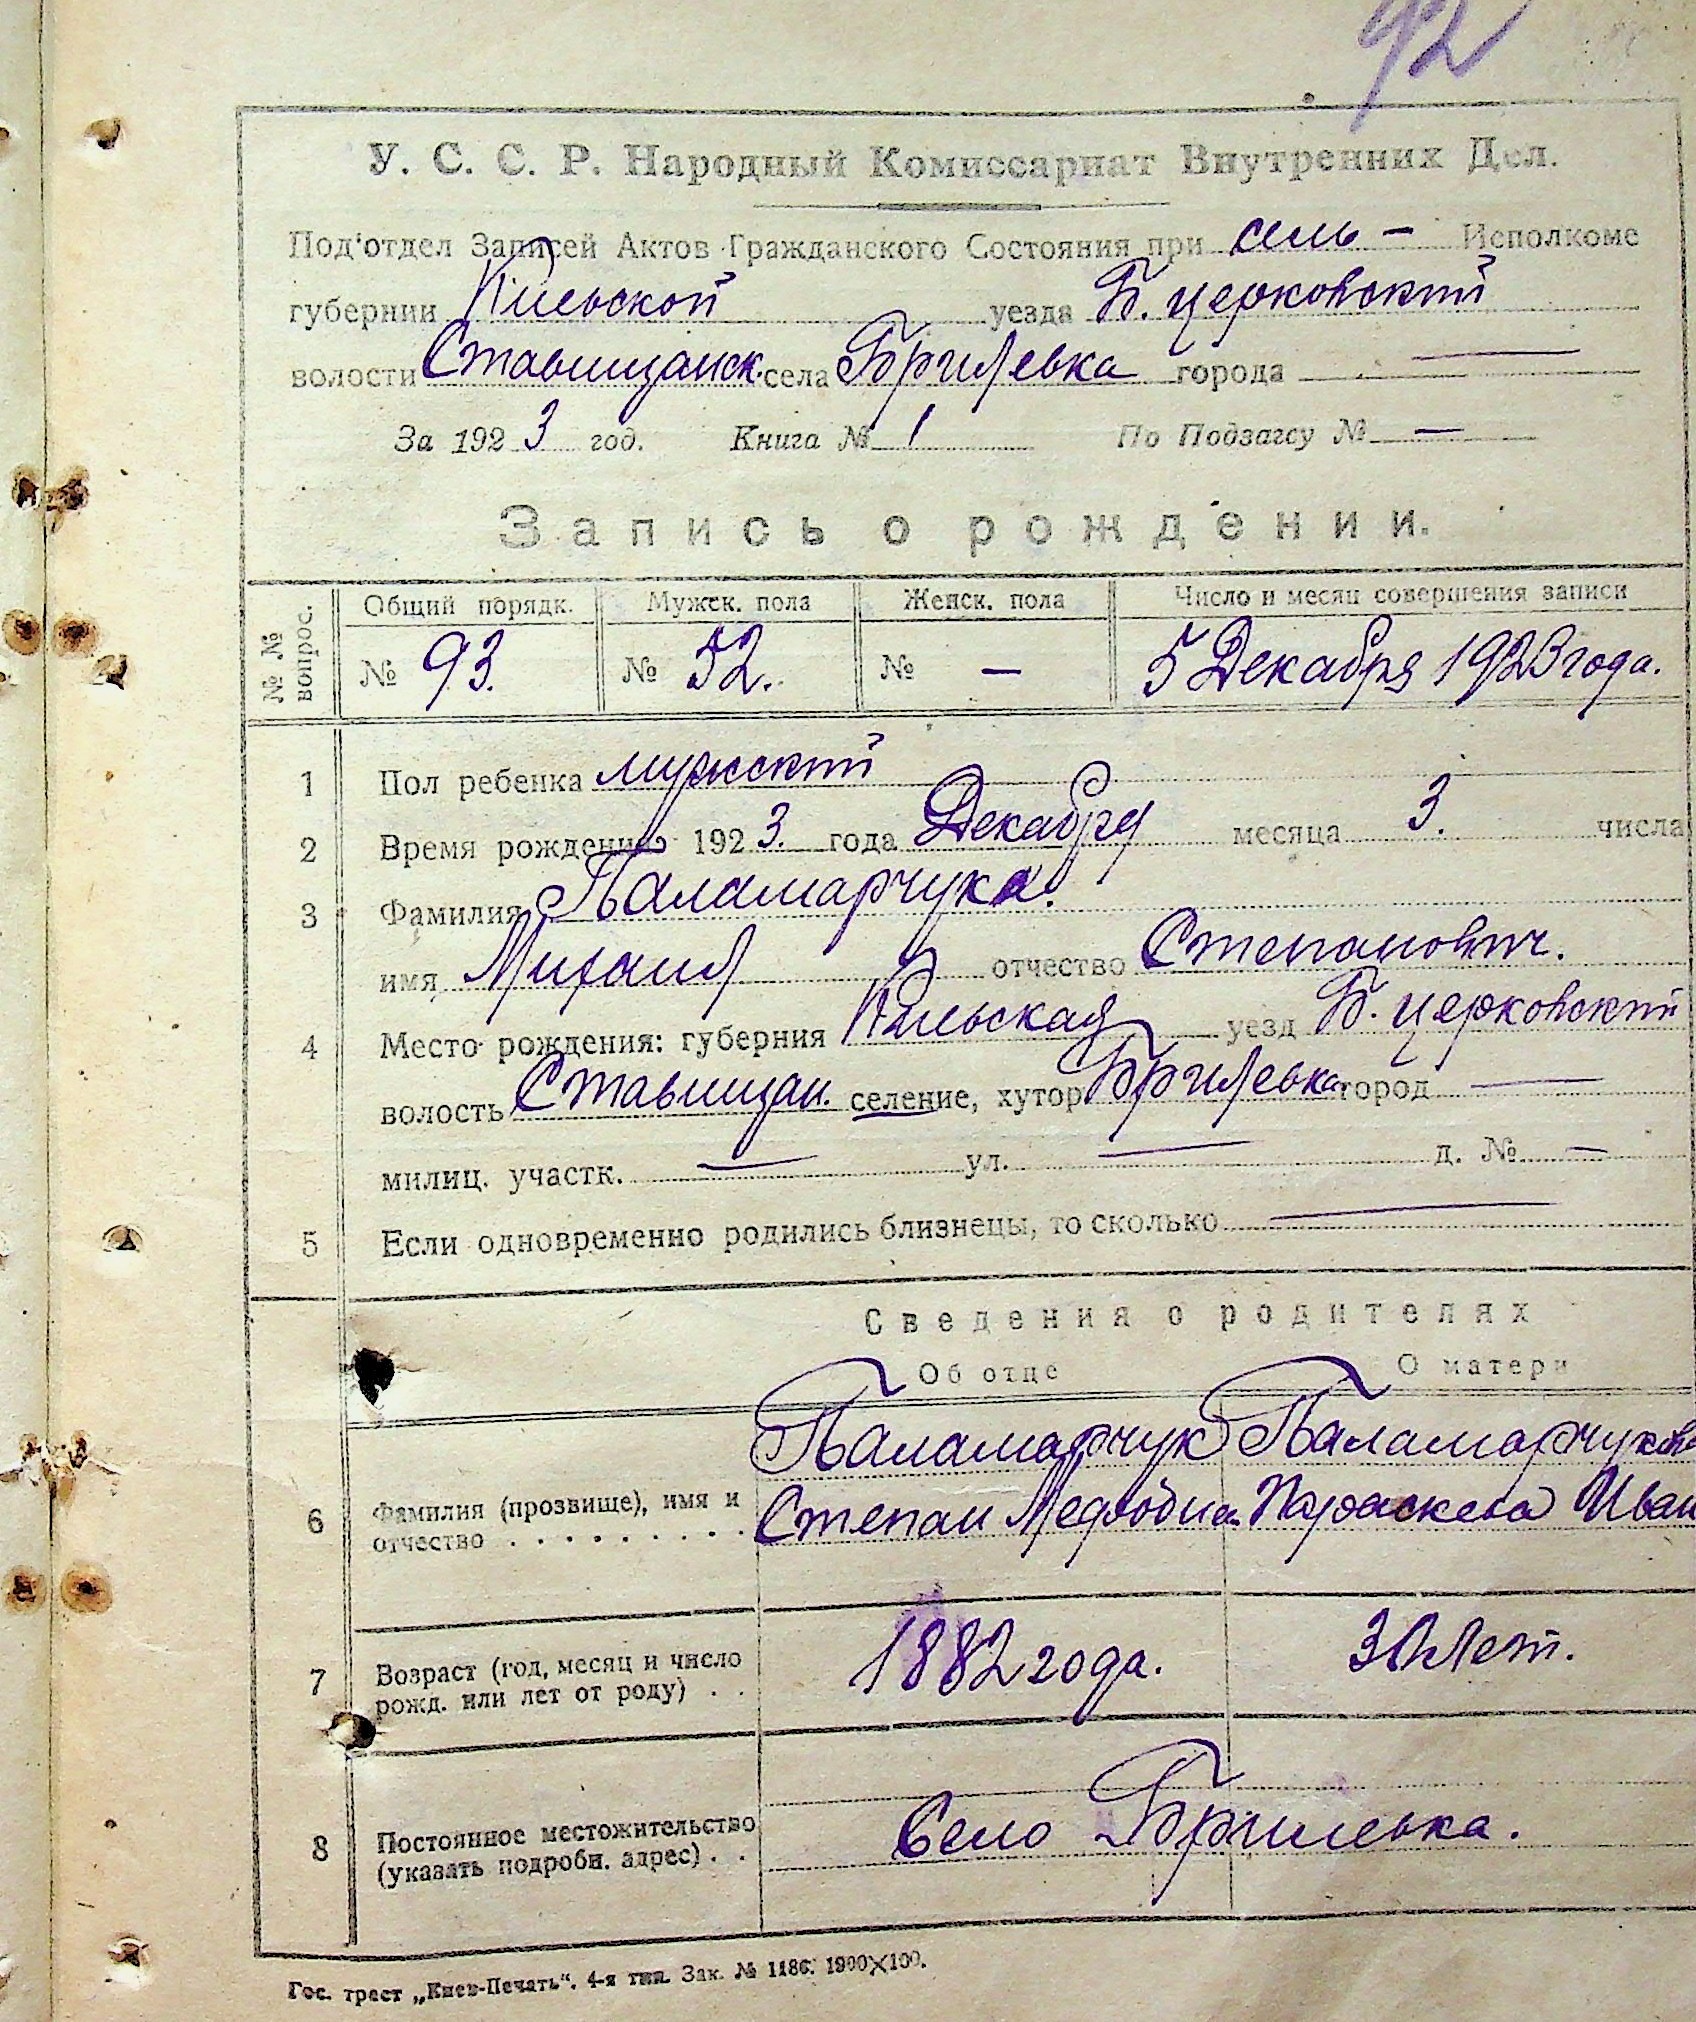 92
У. С. С. Р. Народный Комиссариат Внутренних Дел.
Под'отдел Записей Актов Гражданского Состояния при сель – Исполкоме
губернии Киевской уезда Б. Церковский
волости Ставищанск. села Брилевка города —
За 1923 год. Книга № 1 По Подзагсу № —
Запись о рождении.
№ № вопрос. Общий порядк. Мужск. пола Женск. пола Число и месяц совершения записи
№ 93. № 52. № — 5 Декабря 1923 года.
1 Пол ребенка мужский
2 Время рождения 1923. года Декабря месяца 3. числа
3 Фамилия Паламарчука.
имя Михаил отчество Степанович.
4 Место рождения: губерния Киевская уезд Б. Церковский
волость Ставищан. селение, хутор Брилевка город —
милиц. участк. — ул. — д. № —
5 Если одновременно родились близнецы, то сколько —
Сведения о родителях
Об отце О матери
Паламарчук Паламарчукова
6 Фамилия (прозвище), имя и Степан Мефодиев Параскева Иван
отчество . . . . . . . .
7 Возраст (год, месяц и число 1882 года. 30 лет.
рожд. или лет от роду) . .
8 Постоянное местожительство Село Брилевка.
(указать подробн. адрес) . .
Гос. трест „Киев-Печать“. 4-я тип. Зак. № 1186. 1900×100.